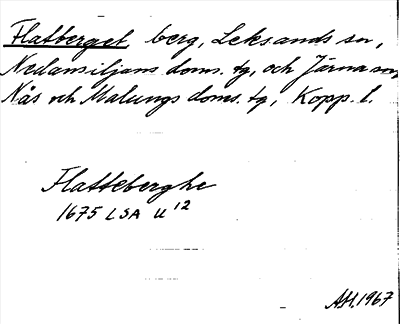 Flatberget, berg, Leksands sn,
Nedansiljans doms. tg, och Järna sn,
Nås och Malungs doms. tg, Kopp. l.
Flatteberghe
1675 LSA U 12
AH. 1967